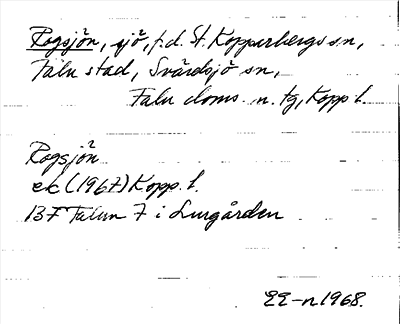 Rogsjön, sjö, p.d. St. Kopparbergs sn,
Falu stad, Svärdsjö sn,
Falu doms. n. tg, Kopp l.
Rogsjön
ek (1967) Kopp. l.
13F Falun 7 i Lurgården
EE-n 1968.